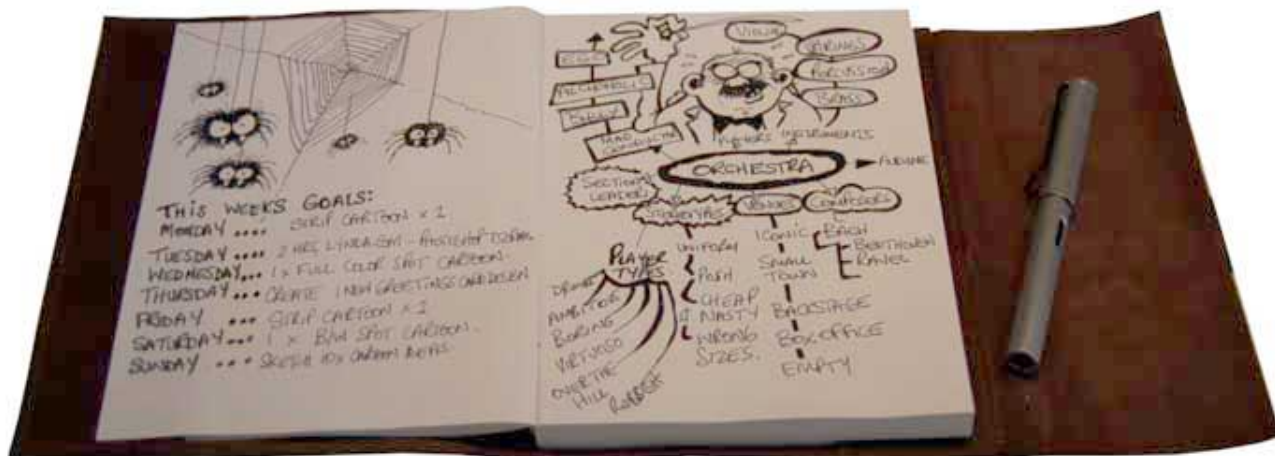 THIS WEEKS GOALS:
MONDAY .... STRIP CARTOON x 1
TUESDAY .... 2 HRS LYNDA.COM - PHOTOSHOP
WEDNESDAY... 1 x FULL COLOR SPOT CARTOON.
THURSDAY ... CREATE 1 NEW GREETINGS CARD DESIGN
FRIDAY ... STRIP CARTOON x 1
SATURDAY ... 1 x B/W SPOT CARTOON.
SUNDAY ... SKETCH 10x CARTOON IDEAS
EGO
ALCOHOLIC
MAD CONDUCTOR
STRINGS
PERCUSSION
BRASS
INSTRUMENTS
ORCHESTRA
SECTION LEADER
STEREOTYPES
VENUES
COMPOSERS
PLAYER TYPES
DRUNK
AMBITION
BORING
VIRTUOSO
OVER THE HILL
RUBBISH
UNIFORM
POSH
CHEAP
NASTY
WRONG
SIZES.
ICONIC
SMALL
TOWN
BACKSTAGE
BOX OFFICE
EMPTY
BACH
BEETHOVEN
RAVEL